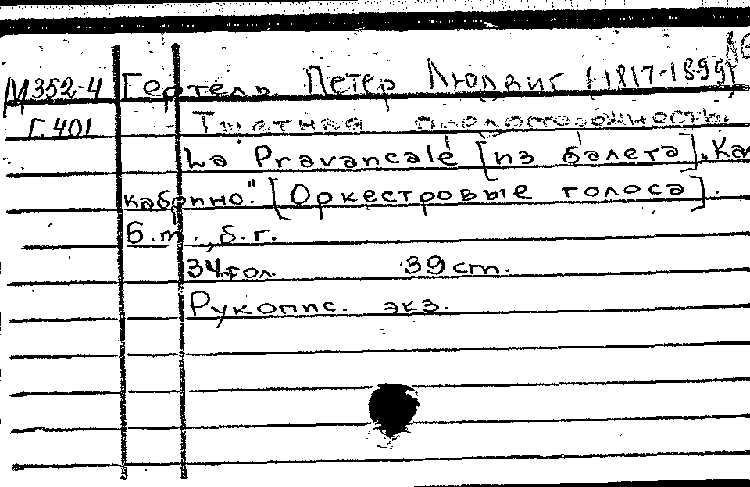 М352-4 Гертель Петер Людвиг (1817-1899)
Г.401 Тщетная предосторожность.
La Pravancale [из балета]. Ка
кабрино". [Оркестровые голоса].
Б.м., б.г.
34 гол. 39 cm.
Рукопис. экз.